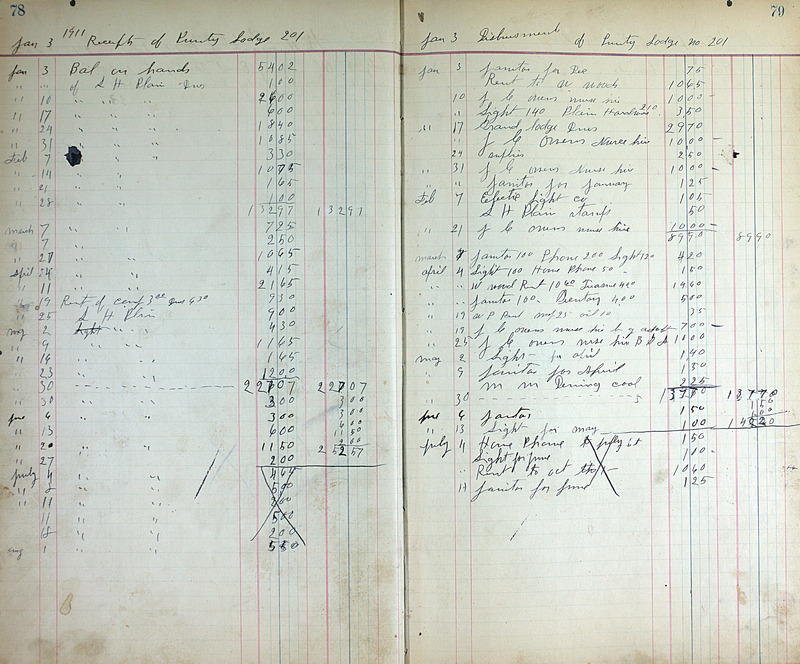 78
Jan 3 1911 Receipts of Purity Lodge 201
Jan 3 Bal on hands 5402
" " of L H Plain Dues 100
" 10 " " " 2600
" 17 " " " 600
" 24 " " " 1840
" 31 " " 1085
Feb 7 " " 330
" 14 " " 1075
" 21 " " 165
" 28 " " 100
13297 13297
March 7 " " 725
" 7 " " 250
" 27 " " 1065
April 24 " " 415
" 11 " " 2165
" 19 Rent of camp 3 00 Dues 630 930
" 25 L H Plain 900
May 2 " " 430
" 9 " " 1165
" 16 " " 165
" 23 " " 1200
" 30 22707 22707
" 30 " " 300 300
June 6 " " 300 300
" 13 " " 600 600
" 20 " " 1150 1150
" 27 " " 200 200
25257
July 4 " " 464
" 8 " " 500
" 11 " " 200
11 " " 500
18 " " 200
Aug 1 " " 550
79
Jan 3 Disbursment of Purity Lodge no 201
Jan 3 Janitor for Dec 75
Rent to W Wood 1065
10 J C Owens nurse hire 1000
" Light 140 Plain Hardware 210 350
" 17 Grand Lodge Dues 2970
" J C Owens Nurse hire 1000
24 Supplies 250
" 31 J C Owens nurse hire 1000
" " Janitor for January 125
Feb 7 Electric Light co 105
L H Plain stamps 50
" 21 J C Owens nurse hire 1000
8990 8990
March 8 Janitor 100 Phone 200 Light 120 420
April 4 Light 100 Home Phone 50 150
" " W Wood Rent 1060 400 1460
" " Janitor 100 400 500
" 19 W P Rent 25 oil 10 35
" 19 J C Owens nurse hire 700
" 25 J C Owens nurse hire 1000
May 2 Light for April 140
" 9 Janitor for April 150
M M Dening coal 225
" 30 13778
June 6 Janitor 150
" 13 Light for May 100
July 4 Home Phone to July 61 150
" Light for June 100
" Rent to Oct 1060
" 11 Janitor for June 125